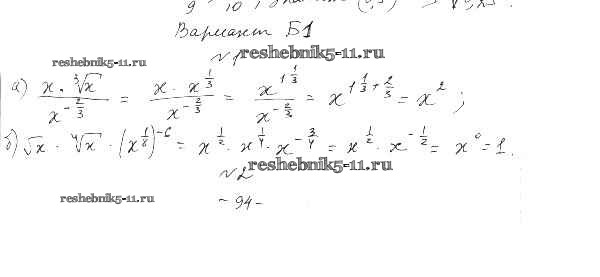 Вариант Б1
№1
reshebnik5-11.ru
reshebnik5-11.ru
а) (x · ∛x) / x^(-2/3) = (x · x^(1/3)) / x^(-2/3) = x^(1 1/3) / x^(-2/3) = x^(1 1/3 + 2/3) = x²;
б) √x · ⁴√x · (x^(1/8))^(-6) = x^(1/2) · x^(1/4) · x^(-3/4) = x^(1/2) · x^(-1/2) = x⁰ = 1.
reshebnik5-11.ru
№2
reshebnik5-11.ru
~ 94 -